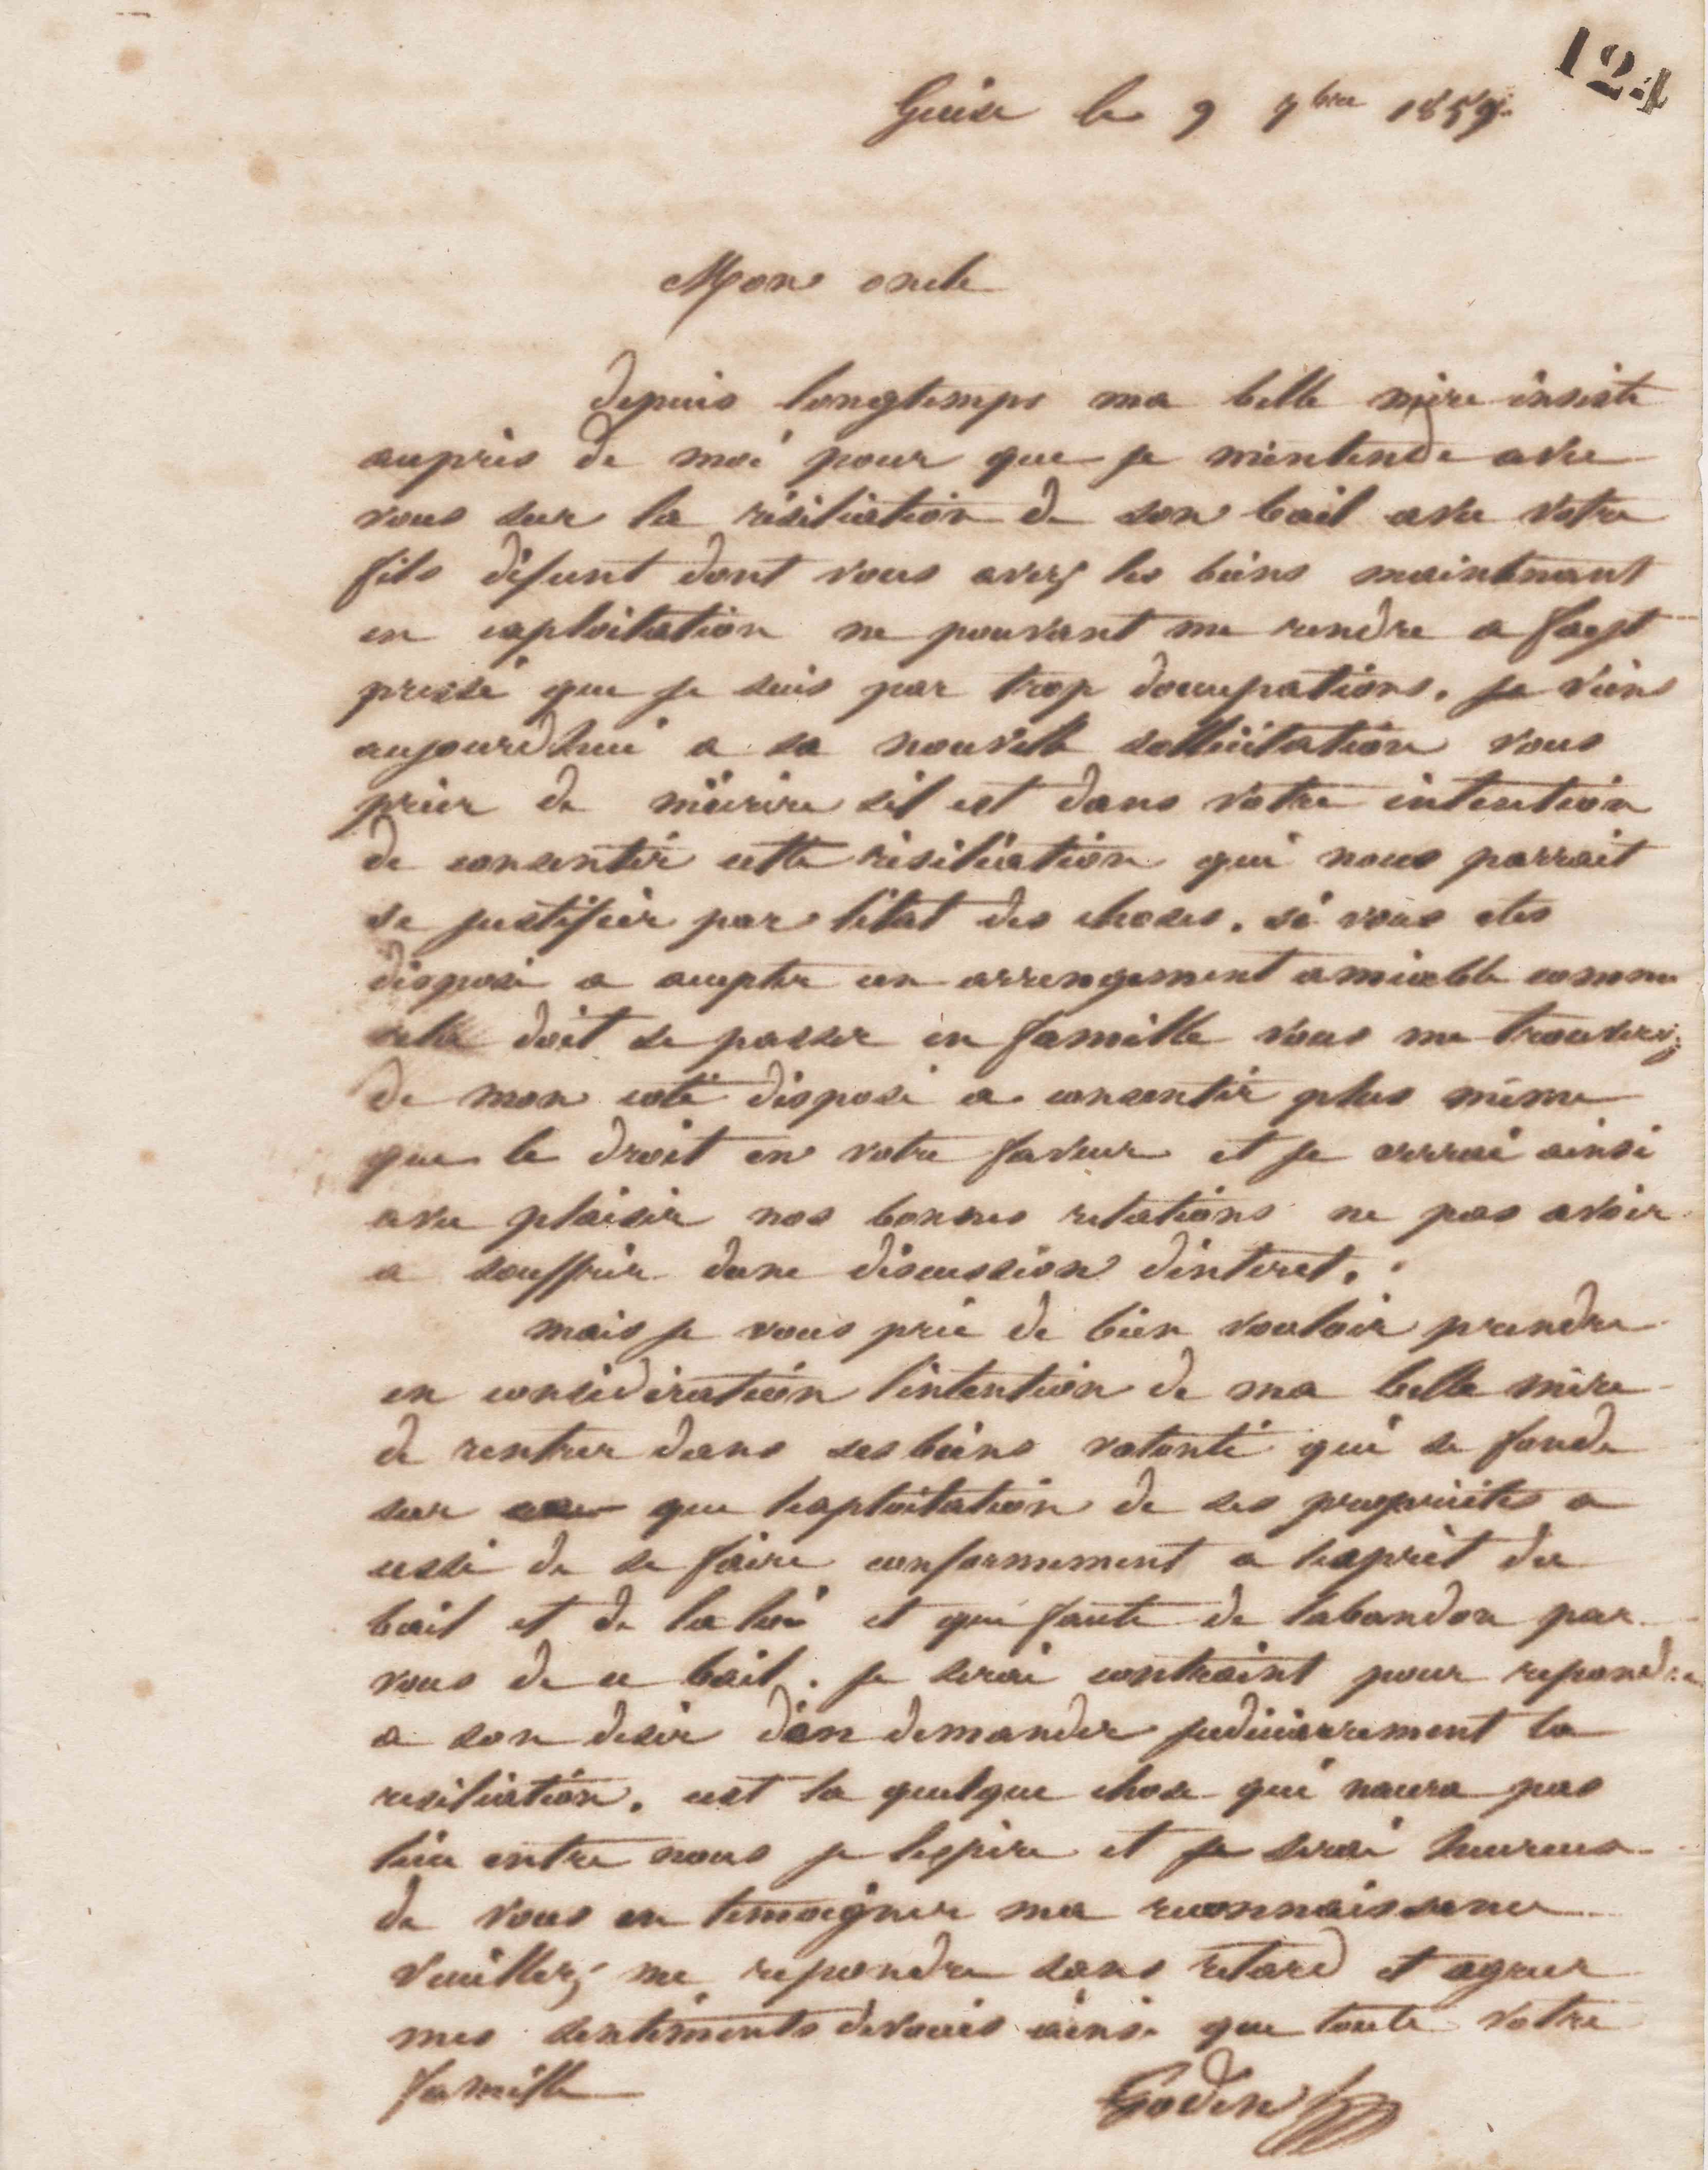 124
Guise le 9 9bre 1859
Mon oncle
depuis longtemps ma belle mère insiste
auprès de moi pour que je mentende avec
vous sur la résiliation de son bail avec votre
fils défunt dont vous avez les biens maintenant
en exploitation ne pouvant me rendre a
pressé que je suis par trop doccupations. je viens
aujourdhui a sa nouvelle sollicitation vous
prier de mécrire sil est dans votre intention
de consentir cette résiliation qui nous parrait
se justifier par létat des choses. si vous etes
disposé a accepter un arrengement amicable comme
cela doit se passer en famille vous me trouverez
de mon coté disposé a consentir plus même
que le droit en votre faveur et je verrai ainsi
avec plaisir nos bonnes relations ne pas avoir
a souffrir dune discussion dinteret.
mais je vous prie de bien vouloir prendre
en considération lintention de ma belle mère
de rentrer dans ses biens volonté qui se fonde
sur que lexploitation de ses propriétés a
cessé de se faire conformement a lesprit du
bail et de la loi et que faute de labandon par
vous de ce bail. je serai contraint pour repondre
a son desir den demander judiciairement la
resiliation. cest la quelque chose qui naura pas
lieu entre nous je lespère et je serai heureux
de vous en temoigner ma reconnaissance
Veuillez me repondre sans retard et agreer
mes sentiments devoués ainsi que toute votre
famille
Godin